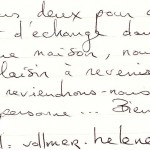 us deux pour
d'échange dan
ne maison, nou
laisir à revenir
reviendrons-nous
personne ... Bien
vollmer-helene